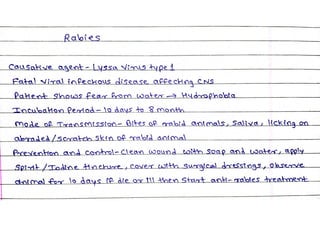 Rabies
Causative agent - Lyssa virus type 1
Fatal viral infectious disease affecting CNS
Patient shows fear from water → Hydrophobia
Incubation Period - 10 days to 8 month
Mode of Transmission - Bites of rabid animals, Saliva, licking on
abraded/scratch skin of rabid animal
Prevention and control - Clean wound with soap and water, apply
spirit/Iodine tincture, cover with surgical dressings, observe
animal for 10 days if die or ill then start anti-rabies treatment